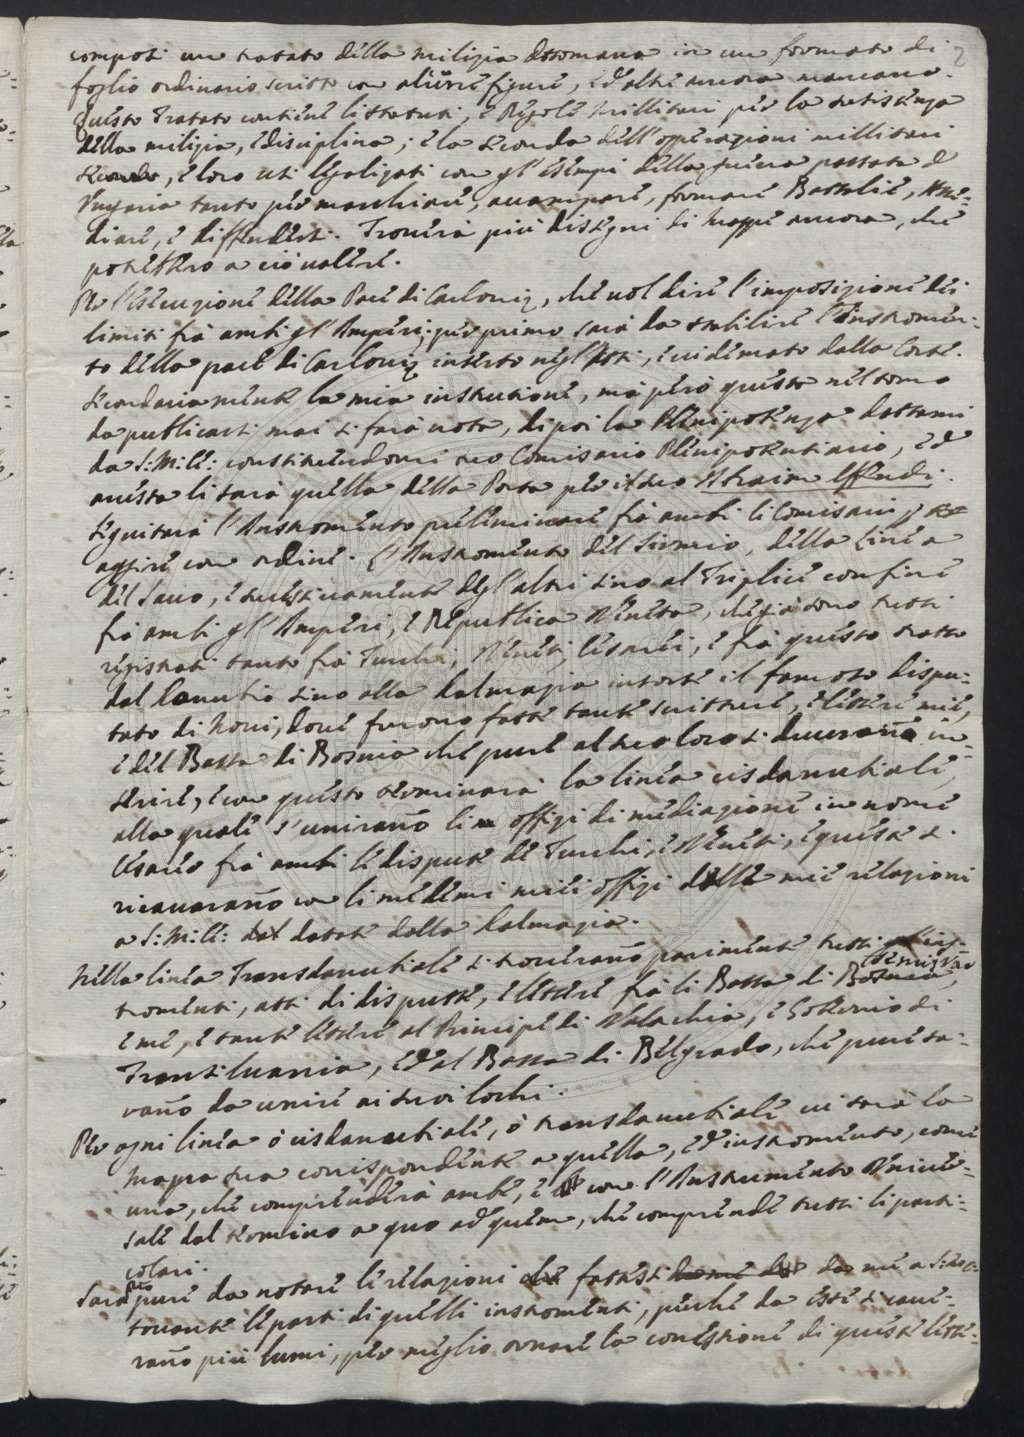 2
composi un tratato della milizia ottomana in un formato di
foglio ordinario scritto con alcune figure, ed altre ancora mancano.
Questo Tratato contiene li statuti, e Regole millitari per la sussistenza
della milizia, e disciplina; e la seconda dell'opperazioni millitari
secondo, e loro usi spalizati con gl'esempi della guerra passata d'
Ungaria tanto per marchiare, accampare, formare Battalie, Asse-
diare, e diffendersi. Troverà più disegni di mappe ancora, che
potessero a ciò valere.
Per l'esecuzione della Pace di Carloviz, che vol dire l'imposizione dei
limiti frà ambi gl'Imperi; per primo sarà da stabilire l'Instromen-
to della pace di Carloviz inserto negl'Atti, e vidimato dalla Corte.
Secondariamente la mia instrutione, mà però questa nel tomo
da publicarsi mai si farà nota, di poi la Plenipotenza dattami
da S: M: C: constituendomi suo Comisario Plenipotentiario, ed
anessa li sarà quella della Porta per il suo Ibraim Effendi.
Seguitarà l'Instromento preliminare frà ambi li Comisarii p
aggire con ordine. L'Instromento del Sirmio, della Linea
del Savo, e successivamente degl'altri sino al Triplice confine
frà ambi gl'Imperi, e Republica Veneta, che già sono tutti
registrati tanto frà Turchi, Veneti, Cesarei, e frà questo tratto
dal Danubio sino alla Dalmazia insorse il famoso dispu-
tato di Novi, dove furono fatte tante scritture, e lettere mie,
e del Bassa di Bosnia che pure al suo loco si doverano in-
serire, e con questo terminarà la linea cisdanubiale,
alla quale s'unirano li offizi di mediazione in nome
Cesareo frà ambi le dispute de Turchi, e Veneti, e queste si
ricavarano con li medemi miei offizi dalle mie relazioni
a S: M: C: datate dalla Dalmazia.
Nella linea Transdanubiale si troverano parimente tutti gl'ins-
tromenti, atti di dispute, e lettere frà li Bassa di Bosnia, Temisvar
e me, e tante lettere al Principe di Valachia, e Governo di
Transilvania, ed al Bassa di Belgrado, che pure sa-
rano da unire ai suoi lochi.
Per ogni linea ò cisdanubiale, ò transdanubiale vi sarà la
mappa sua corrispondente a quella, ed instromento, come
una, che comprenderà ambe, e con l'Instrumento Univer-
sale dal termino a quo ad quem, che comprende tutti li parti-
colari.
Sarà però pure da notare le relazioni fattesi da me a S: M: C:
tocante le parti di quelli instromenti, perchè da esse si cave-
rano più lumi, per meglio ornare la conessione di queste lette-